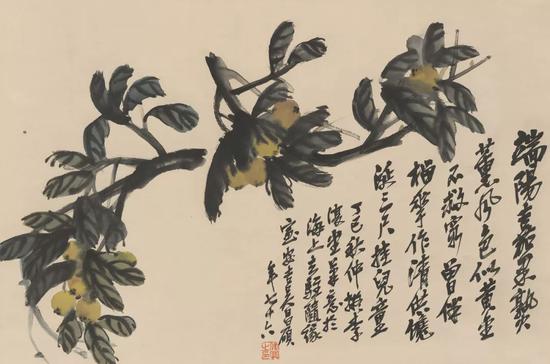 端陽嘉果熟
薰風色似黃金
不救窮曾伴
榴花作清供饞
涎三尺挂兒童
丁巳秋仲擬李
復堂草意於
海上去駐隨緣
室安吉吳昌碩
年七十